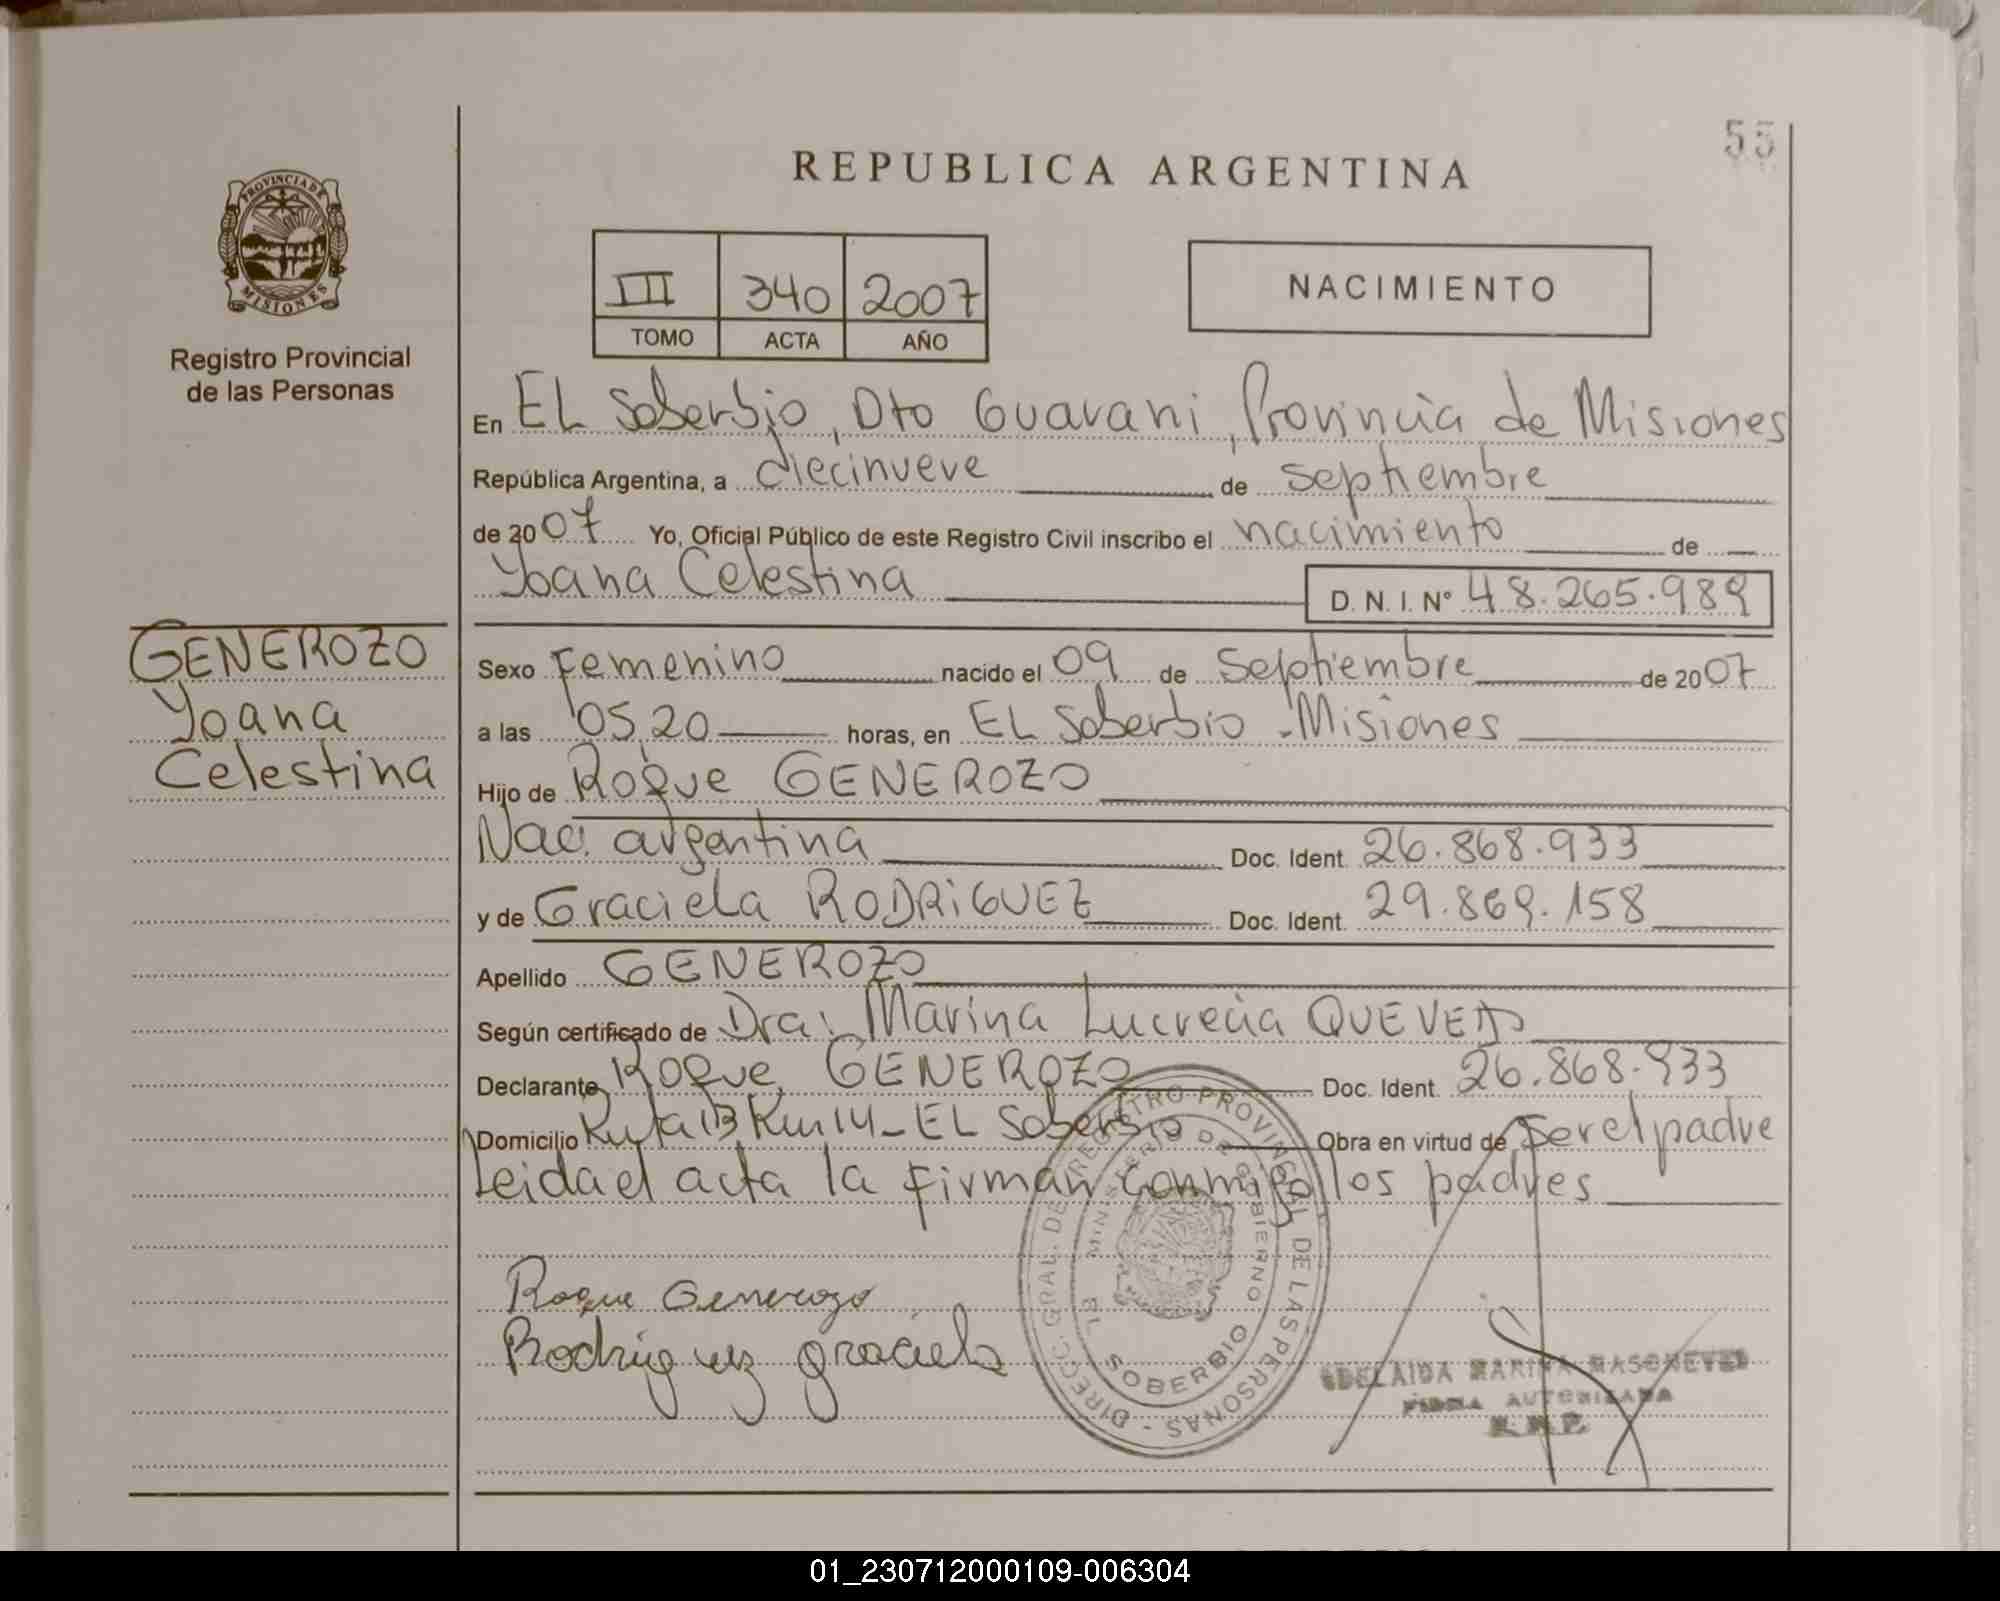 55
REPUBLICA ARGENTINA
PROVINCIA DE
MISIONES
Registro Provincial
de las Personas
III 340 2007
TOMO ACTA AÑO
NACIMIENTO
En EL Soberbio, Dto Guarani, Provincia de Misiones
República Argentina, a diecinueve de septiembre
de 2007 Yo, Oficial Público de este Registro Civil inscribo el nacimiento de
Yoana Celestina D. N. I. N° 48.265.989
GENEROZO
Yoana
Celestina
Sexo Femenino nacido el 09 de Septiembre de 2007
a las 05,20 horas, en EL Soberbio - Misiones
Hijo de Roque GENEROZO
Nac. argentina Doc. Ident. 26.868.933
y de Graciela RODRIGUEZ Doc. Ident. 29.869.158
Apellido GENEROZO
Según certificado de Dra: Marina Lucrecia
Declarante Roque GENEROZO Doc. Ident. 26.868.933
Domicilio Ruta 13 Km 14 - EL Soberbio Obra en virtud de Ser el padre
Leida el acta la firman conmigo los padres
Roque Generozo
Rodriguez graciela
DIRECC. GRAL. DE REGISTRO PROVINCIAL DE LAS PERSONAS -
MINISTERIO DE GOBIERNO
EL SOBERBIO
ADELAIDA MARINA
FIRMA AUTORIZADA
R.N.P.
01_230712000109-006304